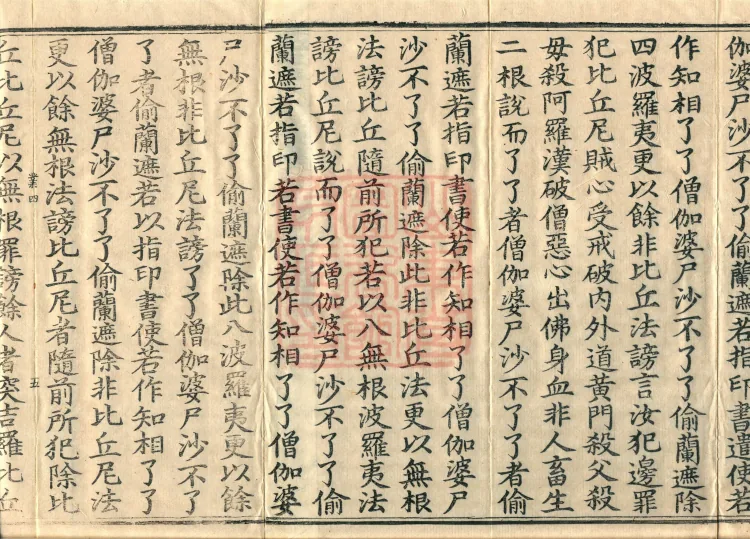 伽婆尸沙不了了偷蘭遮若指印書遣使若
作知相了了僧伽婆尸沙不了了偷蘭遮除
四波羅夷更以餘非比丘法謗言汝犯邊罪
犯比丘尼賊心受戒破内外道黄門殺父殺
毋殺阿羅漢破僧惡心出佛身血非人畜生
二根說而了了者僧伽婆尸沙不了了者偷
蘭遮若指印書使若作知相了了僧伽婆尸
沙不了了偷蘭遮除此非比丘法更以無根
法謗比丘隨前所犯若以八無根波羅夷法
謗比丘尼說而了了僧伽婆尸沙不了了偷
蘭遮若指印若書使若作知相了了僧伽婆
尸沙不了了偷蘭遮除此八波羅夷更以餘
無根非比丘尼法謗了了僧伽婆尸沙不了
了者偷蘭遮若以指印書使若作知相了了
僧伽婆尸沙不了了偷蘭遮除非比丘尼法
更以餘無根法謗比丘尼者隨前所犯除比
業四 五
丘比丘尼以無根罪謗餘人者突吉羅比丘